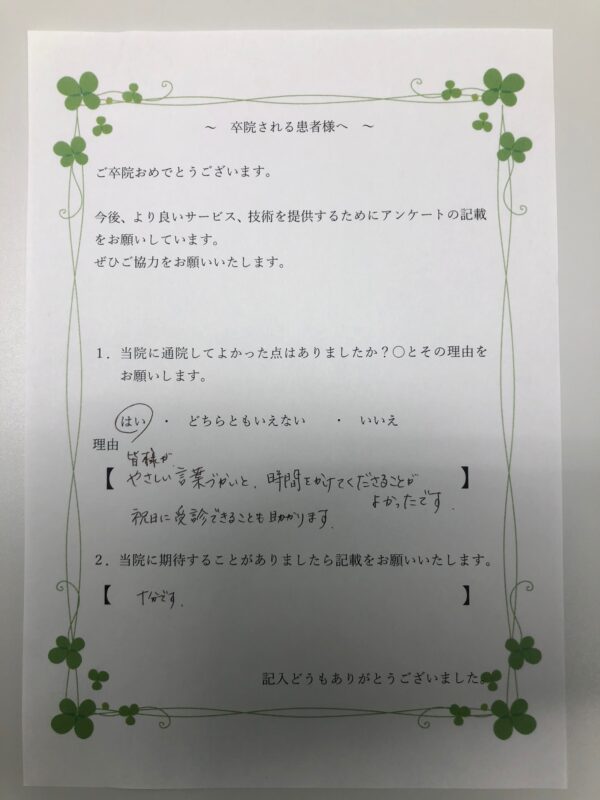 ～　卒院される患者様へ　～
ご卒院おめでとうございます。
今後、より良いサービス、技術を提供するためにアンケートの記載
をお願いしています。
ぜひご協力をお願いいたします。
１．当院に通院してよかった点はありましたか？○とその理由を
お願いします。
はい　・　どちらともいえない　・　いいえ
理由
皆様が
【 やさしい言葉づかいと、時間をかけてくださることが 】
よかったです。
祝日に受診できることも助かります。
２．当院に期待することがありましたら記載をお願いいたします。
【 十分です。 】
記入どうもありがとうございました。